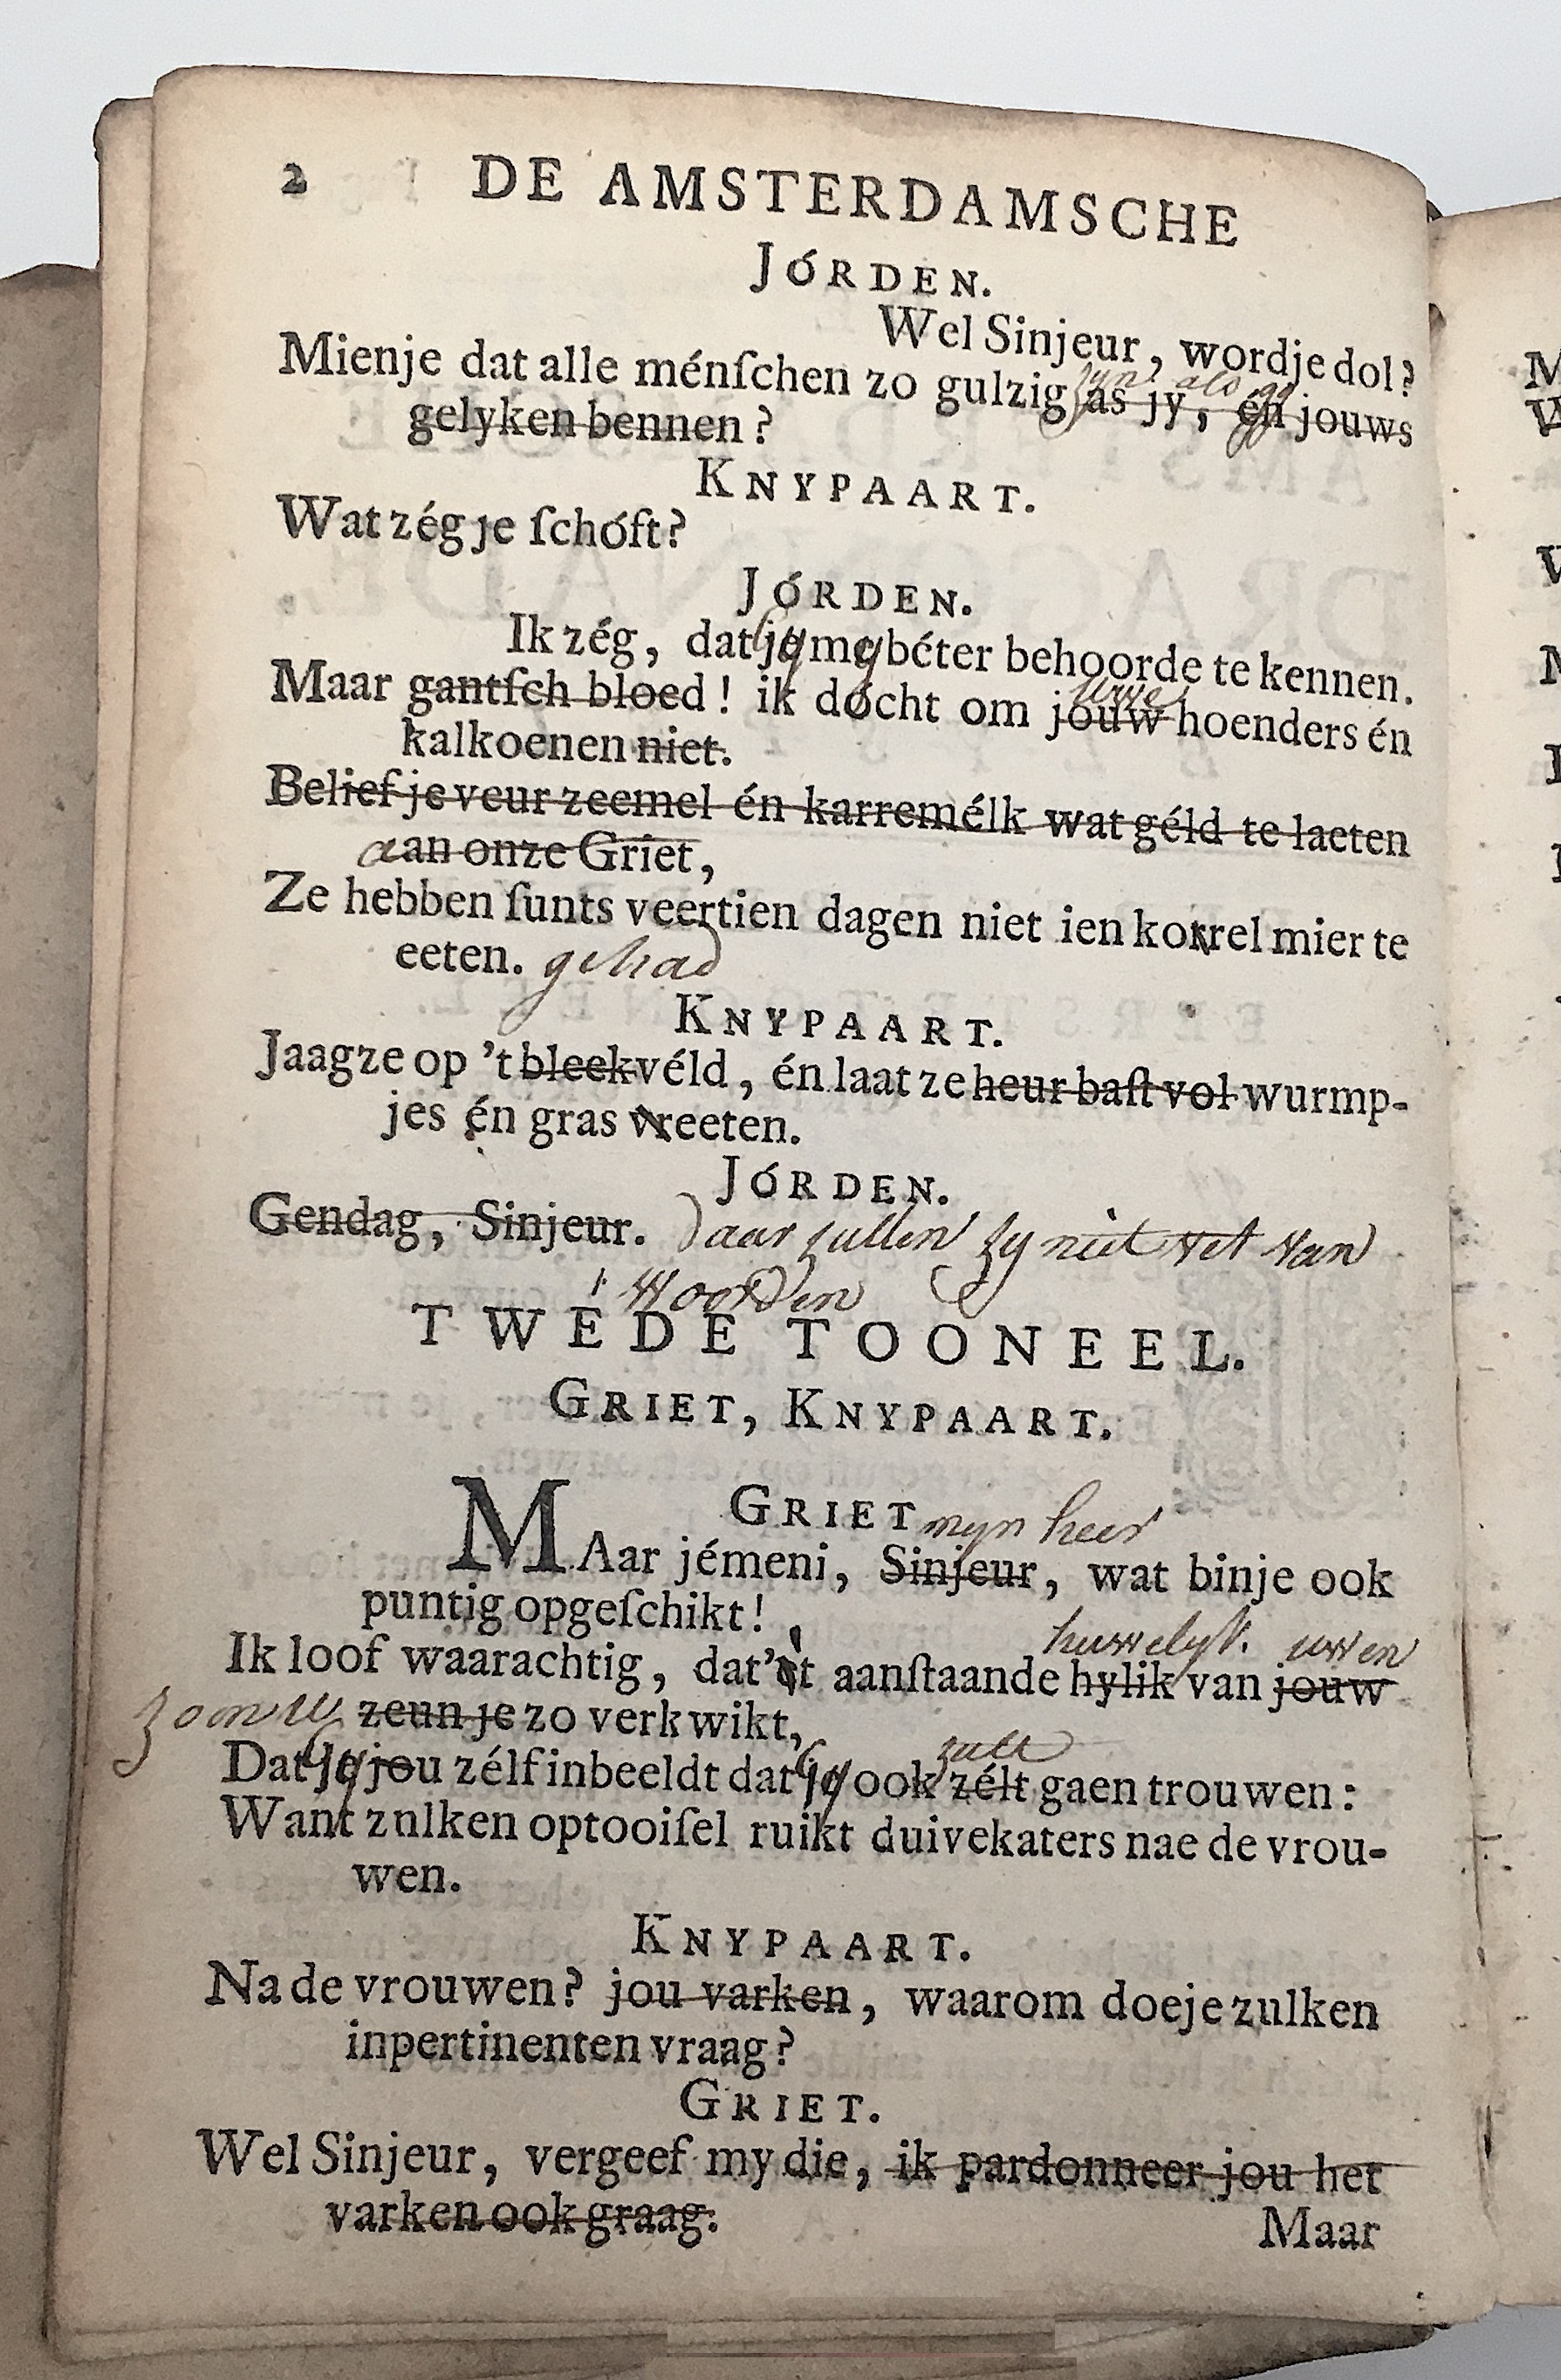 2 DE AMSTERDAMSCHE
JÓRDEN.
Wel Sinjeur, wordje dol?
Mienje dat alle ménſchen zo gulzig as jy, én jouws
zyn als gy
gelyken bennen?
KNYPAART.
Wat zég je ſchóft?
JÓRDEN.
Ik zég, dat je my béter behoorde te kennen.
gy
Maar gantſch bloed! ik dócht om jouw hoenders én
uwe
kalkoenen niet.
Belief je veur zeemel én karremélk wat géld te laeten
aan onze Griet,
Ze hebben ſunts veertien dagen niet ien korrel mier te
eeten. gehad
KNYPAART.
Jaagze op 't bleekvéld, én laat ze heur baſt vol wurmp-
jes én gras vreeten.
JÓRDEN.
Gendag, Sinjeur. Daar zullen zy niet vet van
Worden
TWÉDE TOONEEL.
GRIET, KNYPAART.
GRIET
myn heer
MAar jémeni, Sinjeur, wat binje ook
puntig opgeſchikt!
huwelyk. uwen
Ik loof waarachtig, dat 't aanſtaande hylik van jouw
zoon u zeun je zo verkwikt,
zult
Dat je jou zélf inbeeldt dat je ook zélt gaen trouwen:
gy gy
Want znlken optooiſel ruikt duivekaters nae de vrou-
wen.
KNYPAART.
Na de vrouwen? jou varken, waarom doeje zulken
inpertinenten vraag?
GRIET.
Wel Sinjeur, vergeef my die, ik pardonneer jou het
varken ook graag.
Maar